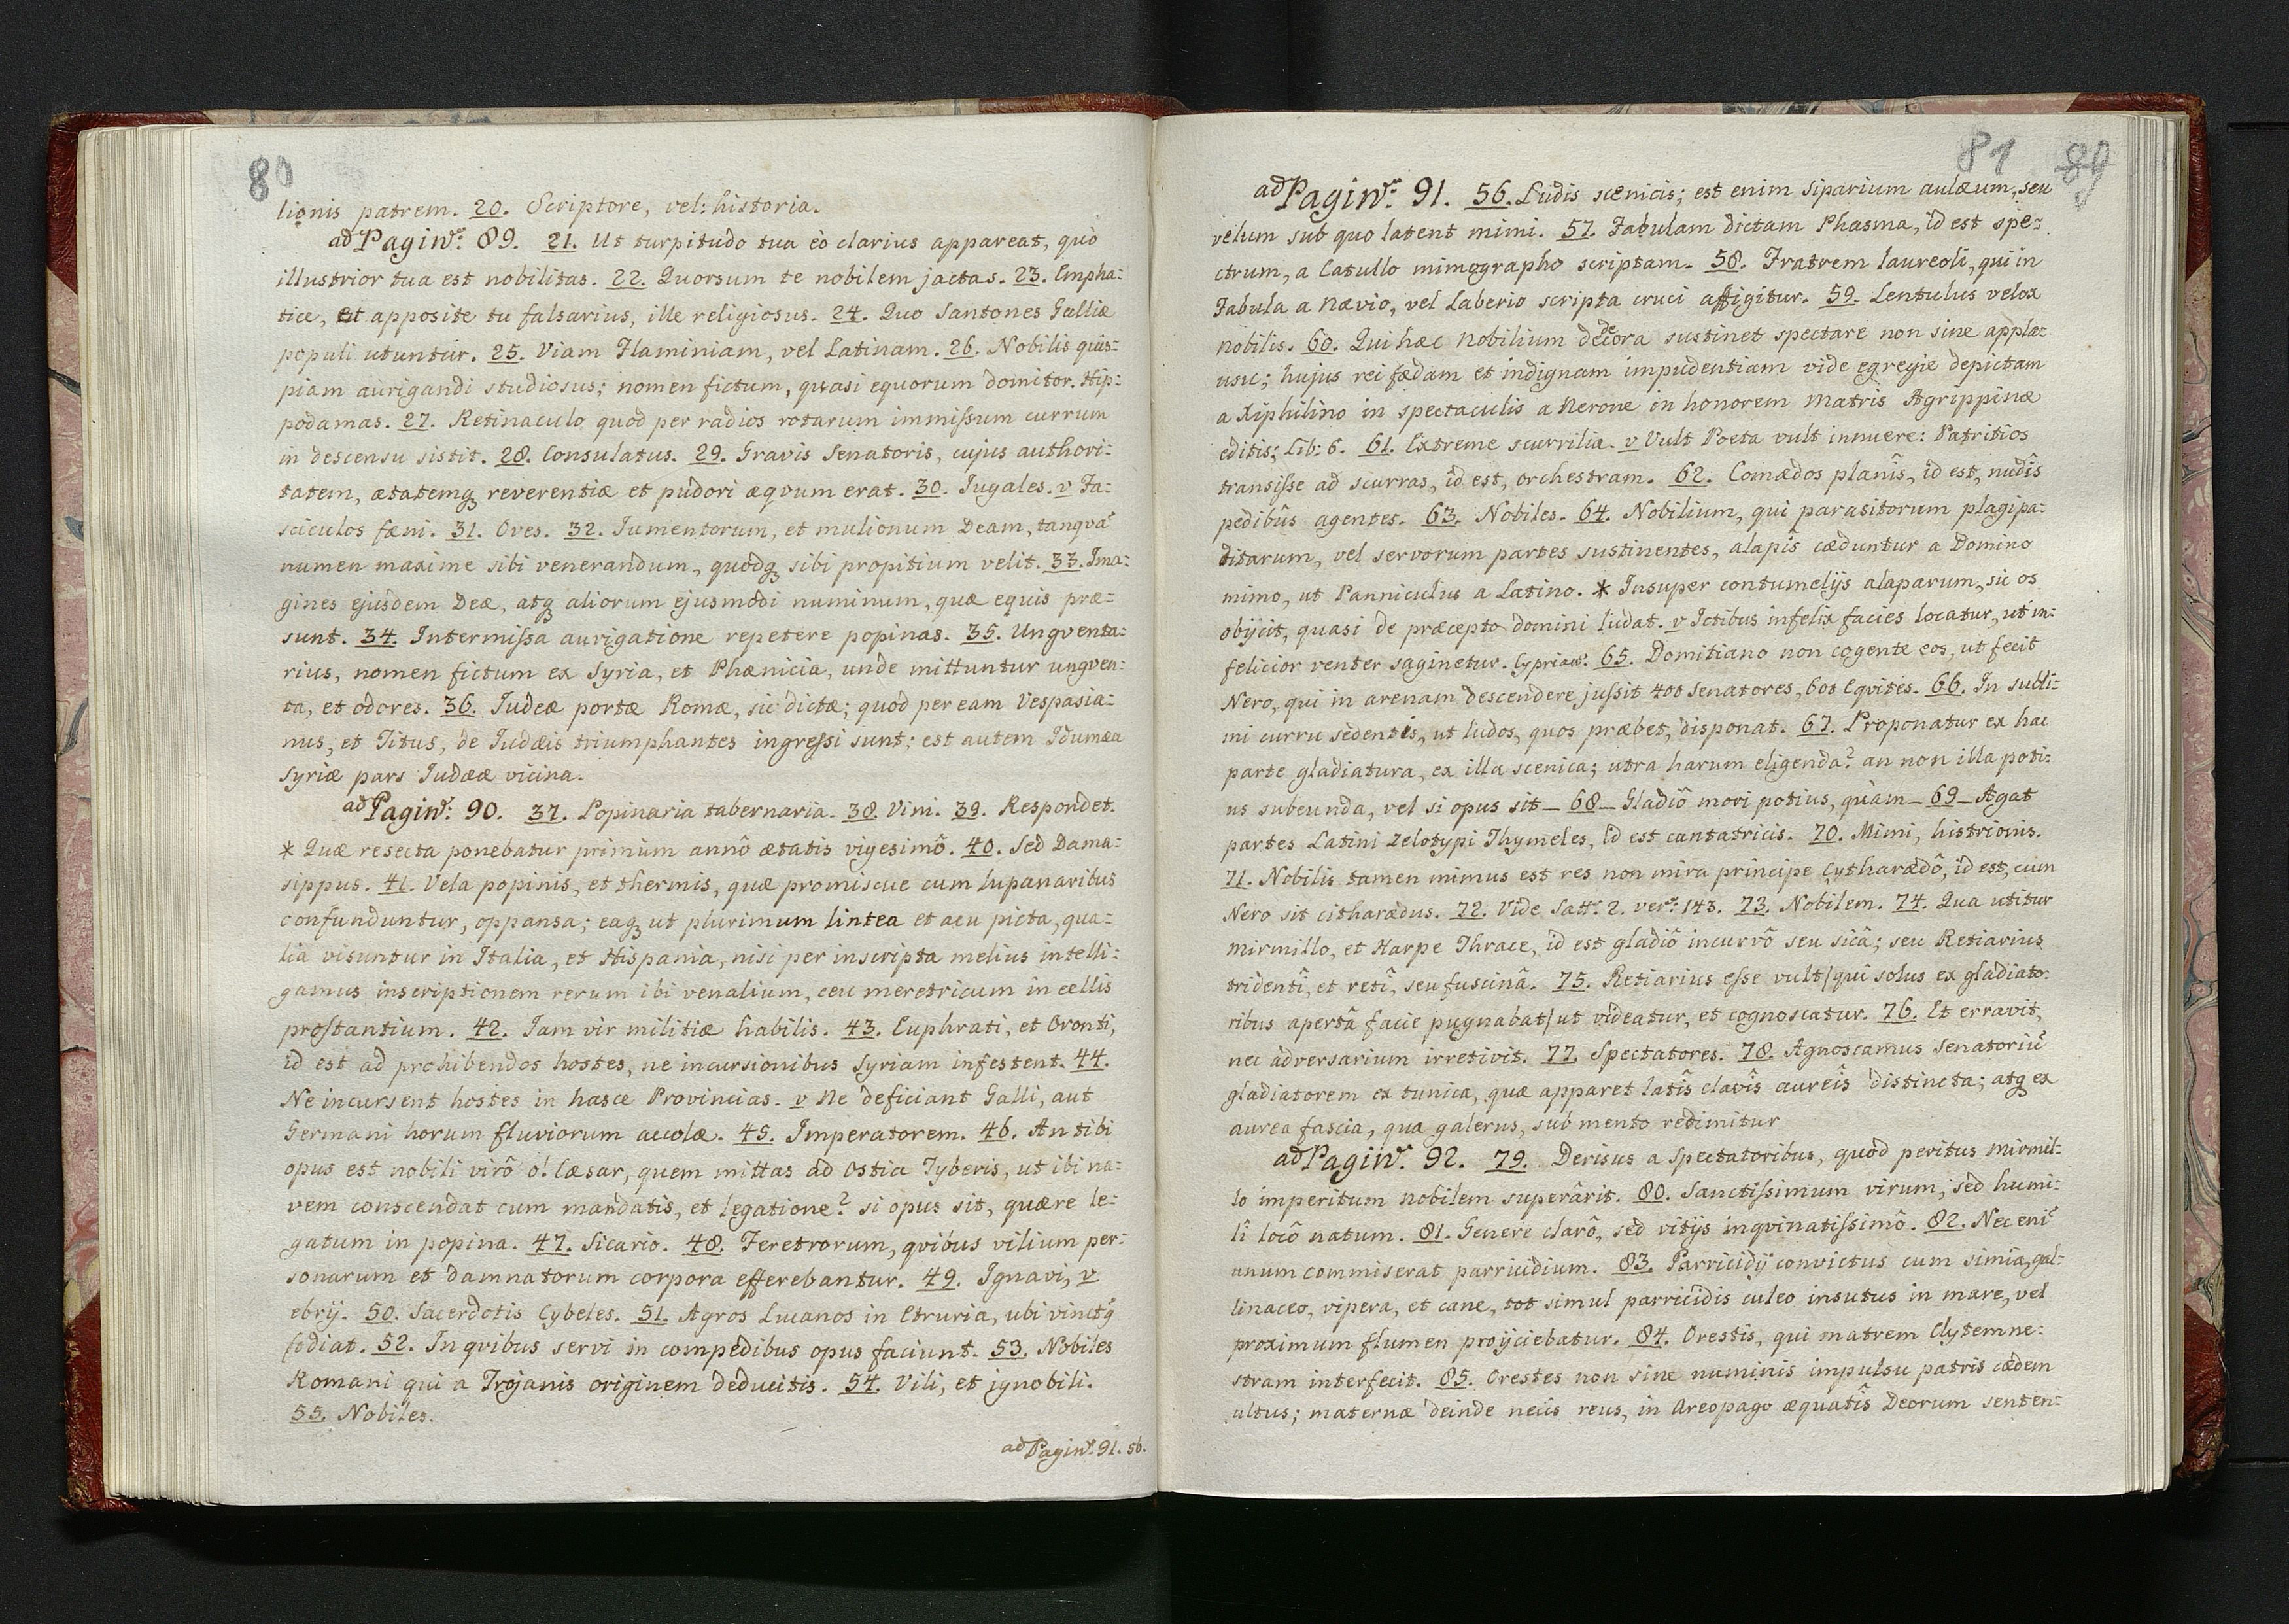 80
lionis patrem. 20. Scriptore, vel: historia.
ad Paginã: 89. 21. Ut turpitudo tua eò clarius appareat, quò
illustrior tua est nobilitas. 22. Quorsum te nobilem jactas. 23. Empha:
tice, et apposite tu falsarius, ille religiosus. 24. Quo Santones Galliæ
populi utuntur. 25. Viam Flaminiam, vel Latinam. 26. Nobilis quis:
piam aurigandi studiosus; nomen fictum, quasi equorum domitor. Hip:
podamas. 27. Retinaculo quod per radios rotarum immiſsum currum
in descensu sistit. 28. Consulatus. 29. Gravis Senatoris, cujus authori:
tatem, ætatemq reverentiæ et pudori æqvum erat. 30. Jugales. v Fa:
sciculos fæni. 31. Oves. 32. Jumentorum, et mulionum Deam, tanqvã
numen maxime sibi venerandum, quodq sibi propitium velit. 33. Ima:
gines ejusdem Deæ, atq aliorum ejusmodi numinum, quæ equis præ:
sunt. 34. Intermiſsa aurigatione repetere popinas. 35. Ungventa:
rius, nomen fictum ex Syria, et Phænicia, unde mittuntur ungven:
ta, et odores. 36. Judeæ portæ Romæ, sic dictæ; quod per eam Vespasia:
nus, et Titus, de Judæis triumphantes ingreſsi sunt; est autem Idumæa
Syriæ pars Judææ vicina.
ad Paginã: 90. 37. Popinaria tabernaria. 38. Vini. 39. Respondet.
* Quæ resecta ponebatur primùm annô ætatis vigesimô. 40. Sed Dama:
sippus. 41. Vela popinis, et thermis, quæ promiscue cum lupanaribus
confunduntur, oppansa; eaq ut plurimum lintea et acu picta, qua:
lia visuntur in Italia, et Hispania, nisi per inscripta melius intelli:
gamus inscriptionem rerum ibi venalium, ceu meretricum in cellis
prostantium. 42. Jam vir militiæ habilis. 43. Euphrati, et Oronti,
id est ad prohibendos hostes, ne incursionibus Syriam infestent. 44.
Ne incursent hostes in hasce Provincias. v Ne deficiant Galli, aut
Germani horum fluviorum accolæ. 45. Imperatorem. 46. An tibi
opus est nobili virô o! Cæsar, quem mittas ad Ostia Tyberis, ut ibi na:
vem conscendat cum mandatis, et legatione? si opus sit, quære le:
gatum in popina. 47. Sicario. 48. Feretrorum, qvibus vilium per:
sonarum et damnatorum corpora efferebantur. 49. Ignavi, v
ebrij. 50. Sacerdotis Cybeles. 51. Agros Lucanos in Etruria, ubi vinctq
fodiat. 52. In qvibus servi in compedibus opus faciunt. 53. Nobiles
Romani qui a Trojanis originem deducitis. 54. Vili, et ignobili.
55. Nobiles.
ad Paginã. 91. 56.
81 89
ad Paginã: 91. 56. Ludis scenicis; est enim Siparium aulæum, seu
velum sub quo latent mimi. 57. Fabulam dictam Phasma, id est spe:
ctrum, a Catullo mimographo scriptam. 58. Fratrem laureoli, qui in
Fabula a Nævio, vel Laberio scripta cruci affigitur. 59. Lentulus velox
nobilis. 60. Qui hæc Nobilium dedecora sustinet spectare non sine applæ:
usu; hujus rei fædam et indignam impudentiam vide egregie depictam
a Xiphilino in spectaculis a Nerone in honorem Matris Agrippinæ
editis; Lib: 6. 61. Extreme scurrilia. v Vult Poeta vult innuere: Patritios
transiſse ad scurras, id est, orchestram. 62. Comædos planîs, id est, nudîs
pedibûs agentes. 63. Nobiles. 64. Nobilium, qui parasitorum plagipa:
titarum, vel servorum partes sustinentes, alapîs cæduntur a Domino
mimo, ut Panniculus a Latino. * Insuper contumelijs alaparum, sic os
obijcit, quasi de præcepto domini ludat. v Ictibus infelix facies locatur, ut in:
felicior venter saginetur. Cyprian9. 65. Domitiano non cogente eos, ut fecit
Nero, qui in arenam descendere juſsit 400 Senatores, 600 Eqvites. 66. In subli:
mi curru sedentis, ut ludos, quos præbet, disponat. 67. Proponatur ex hac
parte gladiatura, ex illa scenica; utra harum eligenda? an non illa poti:
us subeunda, vel si opus sit_ 68_ Gladiô mori potius, quàm_ 69_ Agat
partes Latini zelotypi Thymeles, id est cantatricis. 70. Mimi, histrionis.
71. Nobilis tamen mimus est res non mira principe Cytharædô, id est, cum
Nero sit citharædus. 72. Vide Satt: 2. vers: 143. 73. Nobilem. 74. Qua utitur
Mirmillo, et Harpe Thrace, id est gladiô incurvô seu sicâ; seu Retiarius
tridentî, et retî, seu fuscinâ. 75. Retiarius eſse vult/qui solus ex gladiato:
ribus apertâ facie pugnabat/ut videatur, et cognoscatur. 76. Et erravit,
nec adversarium irretivit. 77. Spectatores. 78. Agnoscamus Senatoriũ
gladiatorem ex tunica, quæ apparet latîs clavîs aureîs distincta; atq ex
aurea fascia, qua galerus, sub mento redimitur
ad Paginã: 92. 79. Derisus a Spectatoribus, quod peritus Mirmil:
lo imperitum nobilem superârit. 80. Sanctiſsimum virum, sed humi:
lî locô natum. 81. Genere clarô, sed vitijs inqvinatiſsimô. 82. Nec enĩ
unum commiserat parricidium. 83. Parricidij convictus cum simia, gal:
linaceo, vipera, et cane, tot simul parricidis culeo insutus in mare, vel
proximum flumen proijciebatur. 84. Orestis, qui matrem Clytemne:
stram interfecit. 85. Orestes non sine numinis impulsu patris cædem
ultus; maternæ deinde necis reus, in Areopago æquatîs Deorum senten: